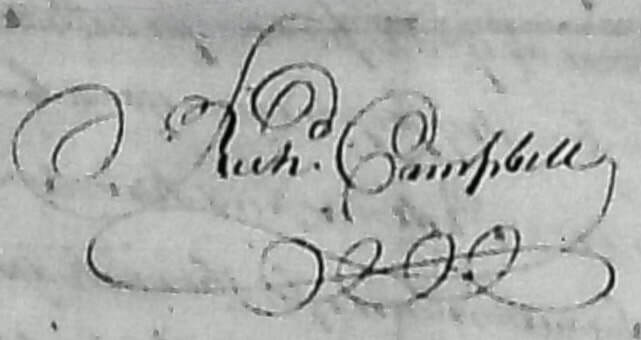 Richd. Campbell